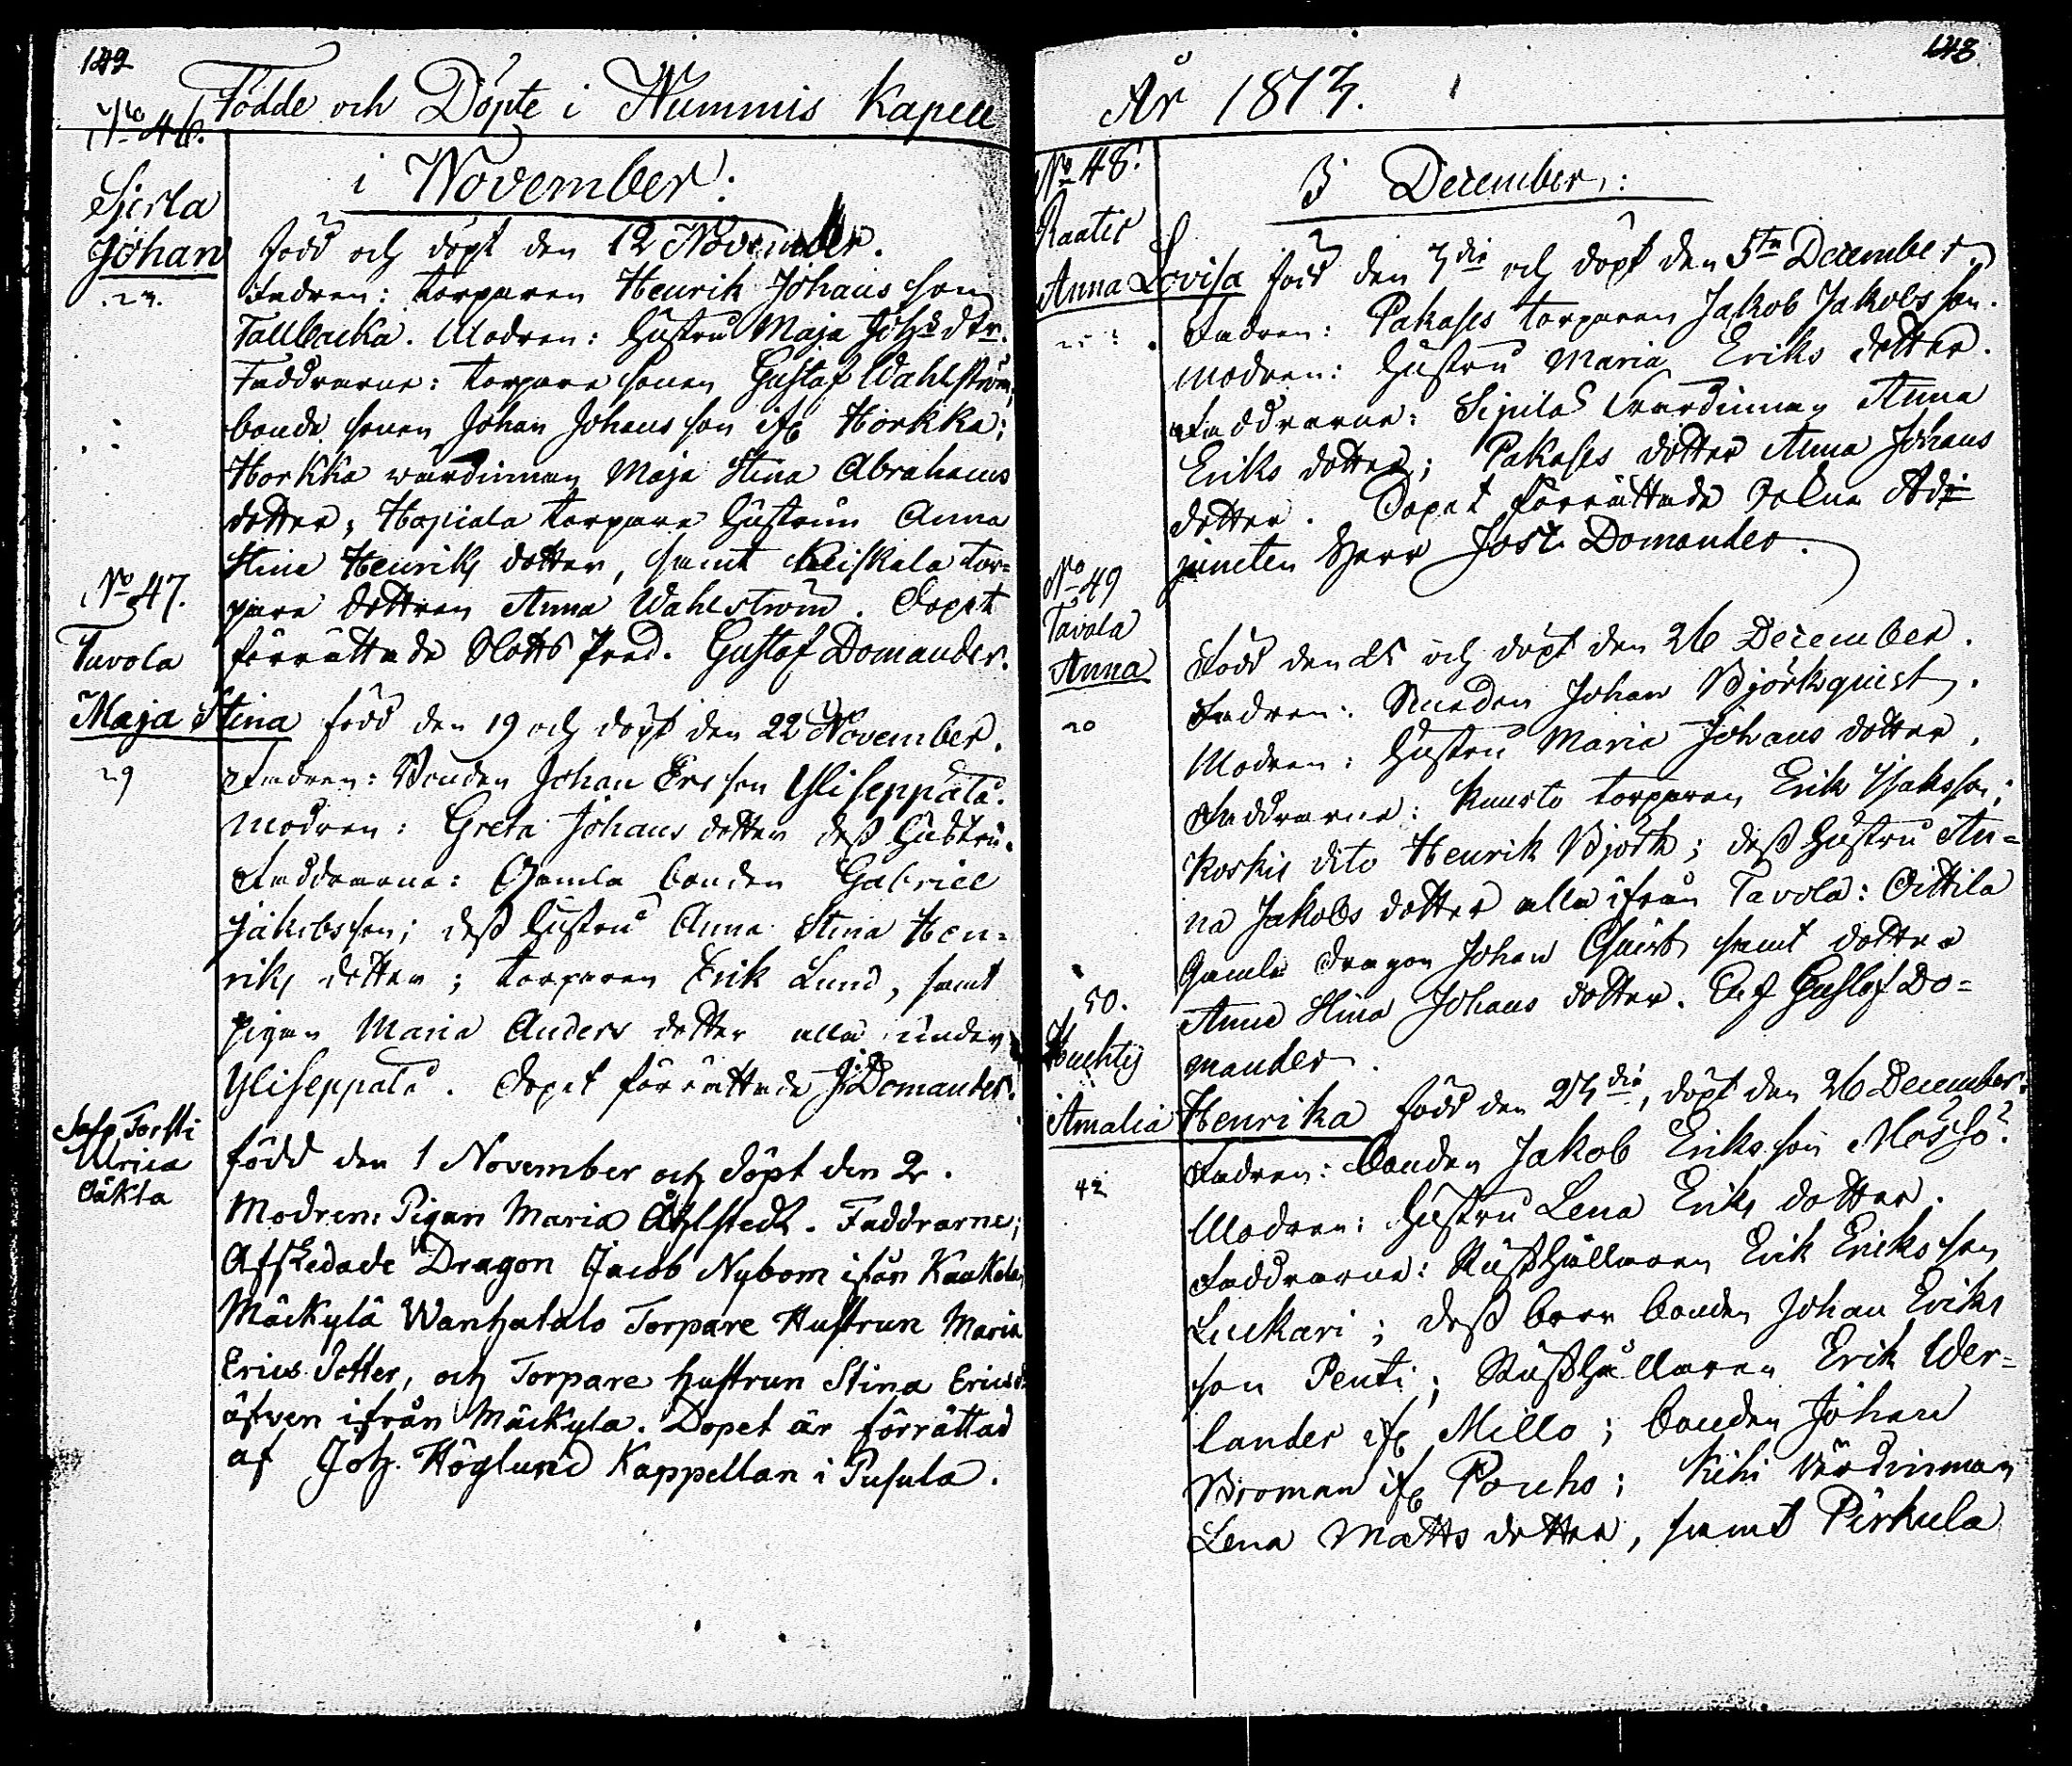 142
Födde och Döpte i Nummis Kapell
No 46.
i November.
Sierla
Johan född och döpt den 12 November.
Fadren: torparen Henrik Johans son
Tallbacka. Modren: hustru Maja Johs dtr.
Faddrarne: torpare sonen Gustaf Wahlström,
bonde sonen Johan Johans son ifr Horkka;
Horkka wärdinnan Maja Stina Abrahams
dotter, torpare hustrun Anna
Stina Henriks dotter, samt Keiskala tor=
pare dottren Anna Wahlström. Dopet
förrättade Slotts Pred. Gustaf Domander.
No 47.
Tavola
Maja Stina född den 19 och döpt den 22 November.
29
Fadren: Bonden Johan Ers son Yliseppälä.
Modren: Greta Johans dotter dess hustru.
Faddrarne: Gamla bonden Gabriel
Jakobsson; dess hustru Anna Stina Hen=
riks dotter; torparen Erik Lund, samt
pigan Maria Anders dotter alla under
Yliseppälä. Dopet förrättade J. Domander.
Torsti
Ulrica
Oäkta
född den 1 November och döpt den 2.
Modren: Pigan Maria Åhlstedt. Faddrarne;
Afskedade Dragon Jacob Nybom ifån Kaukela,
Mäckylä Wanhatalo Torpare Hustrun Maria
Erics Dotter, och Torpare hustrun Stina Ericsd
äfven ifrån Mäckylä. Dopet är förrättad
af Joh. Höglund Kappellan i Pusula.
143.
År 1813.
No 48.
I December:
Raatis
Anna Lovisa född den 3die och döpt den 5te December.
25
Fadren: Pakases torparen Jakob Jakobs son.
Modren: hustru Maria Eriks dotter.
Faddrarne: Sipilas wärdinnan Anna
Eriks dotter; Pakases dotter Anna Johans
dotter. Dopet förrättade Adj=
juncten Herr Jost. Domander.
No 49
Tavola
Anna
Född den 25 och döpt den 26 December.
20
Fadren: Smeden Johan Björkquist.
Modren: hustru Maria Johans dotter.
Faddrarne: Knuuto torparen Erik Isaksson;
Koskis dito Henrik Björk; dess hustru An=
na Jakobs dotter alla ifrån Tavola: Oittila
Gamla dragon Johan Quist samt dotter
Anna Stina Johans dotter. Gustaf Do=
mander.
50.
Huhti
Amalia Henrika född den 23die, döpt den 26 December.
42
Fadren: bonden Jakob Eriks son
Modren: hustru Lena Eriks dotter.
Faddrarne: Rusthållaren Erik Eriks son
Luckari; dess bror bonden Johan Eriks
son Penti; Rusthållaren Erik Wer=
lander ifr Millo; bonden Johan
Broman ifr Porcho; Kihi värdinnan
Lena Matts dotter, samt Pirkula